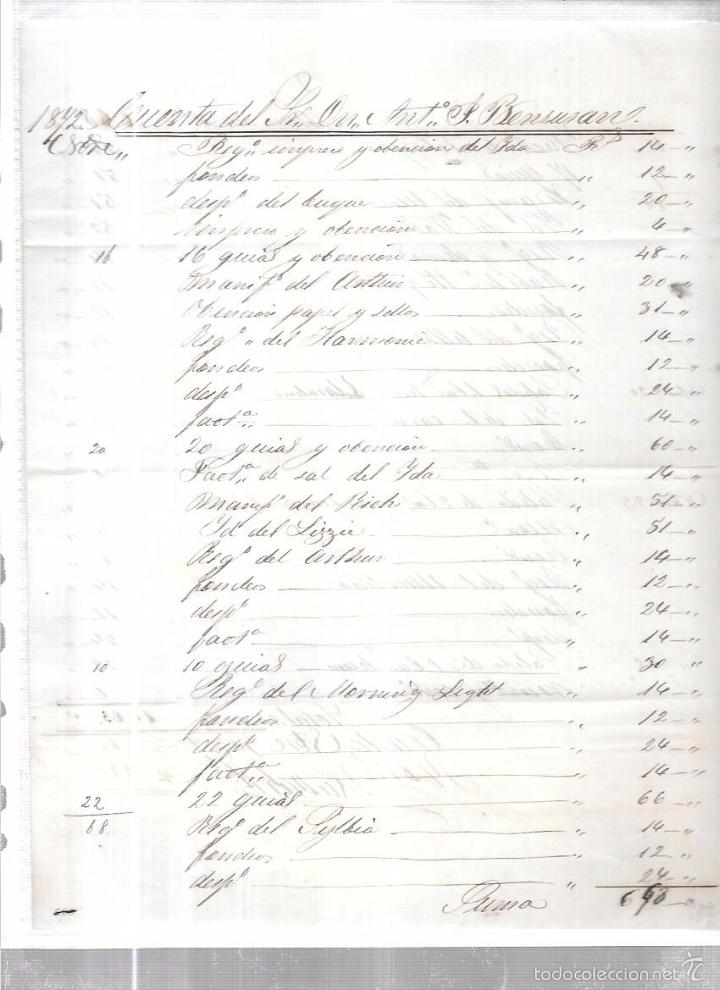 1872. Cuenta del Sr. Dn. Anto. J. Bensusan.
Regº impreso y obencion del Yda Rs 14 "
fondeos " 12 "
despº del buque " 20 "
impreso y obencion " 4 "
16 16 guias y obencion " 48 "
Manifº del Arthur " 20 "
Obencion papel y sellos " 31 "
Regº " del Harmonie " 14 "
fondeos " 12 "
despº " 24 "
factª " 14 "
20 20 guias y obencion " 60 "
Factª de sal del Yda " 14 "
Manifº del Rich " 51 "
Id del Lizzie " 51 "
Regº del Arthur " 14 "
fondeos " 12 "
despº " 24 "
factª " 14 "
10 10 guias " 30 "
Regº del Morning Light " 14 "
fondeos " 12 "
despº " 24 "
factª " 14 "
22 22 guias " 66 "
68 Regº del Sylbia " 14 "
fondeos " 12 "
despº " 24 "
Suma
todocoleccion.net